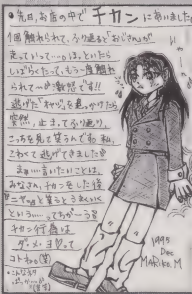 ・先日、お店の中でチカンにあいました
1回触れられて、ふり返るとおじさんが
走っていって…。ほ。といたら
しばらくたって、もう一度触れ
られて…新型です!!
逃げた"ヤツ"を追っかけたら
突然、止まってふり返り、
こっちを見て笑うんです 私、
こわくて逃げてきました
まぁ…言いたいことは、
みなさん、チカンをした後
ニヤッと笑うとうまくいく
という…ってちが〜う
チカン行為は
ダ・メ・ヨ♥って
コトねっ(笑)
1995
Dec
MARIKO.M